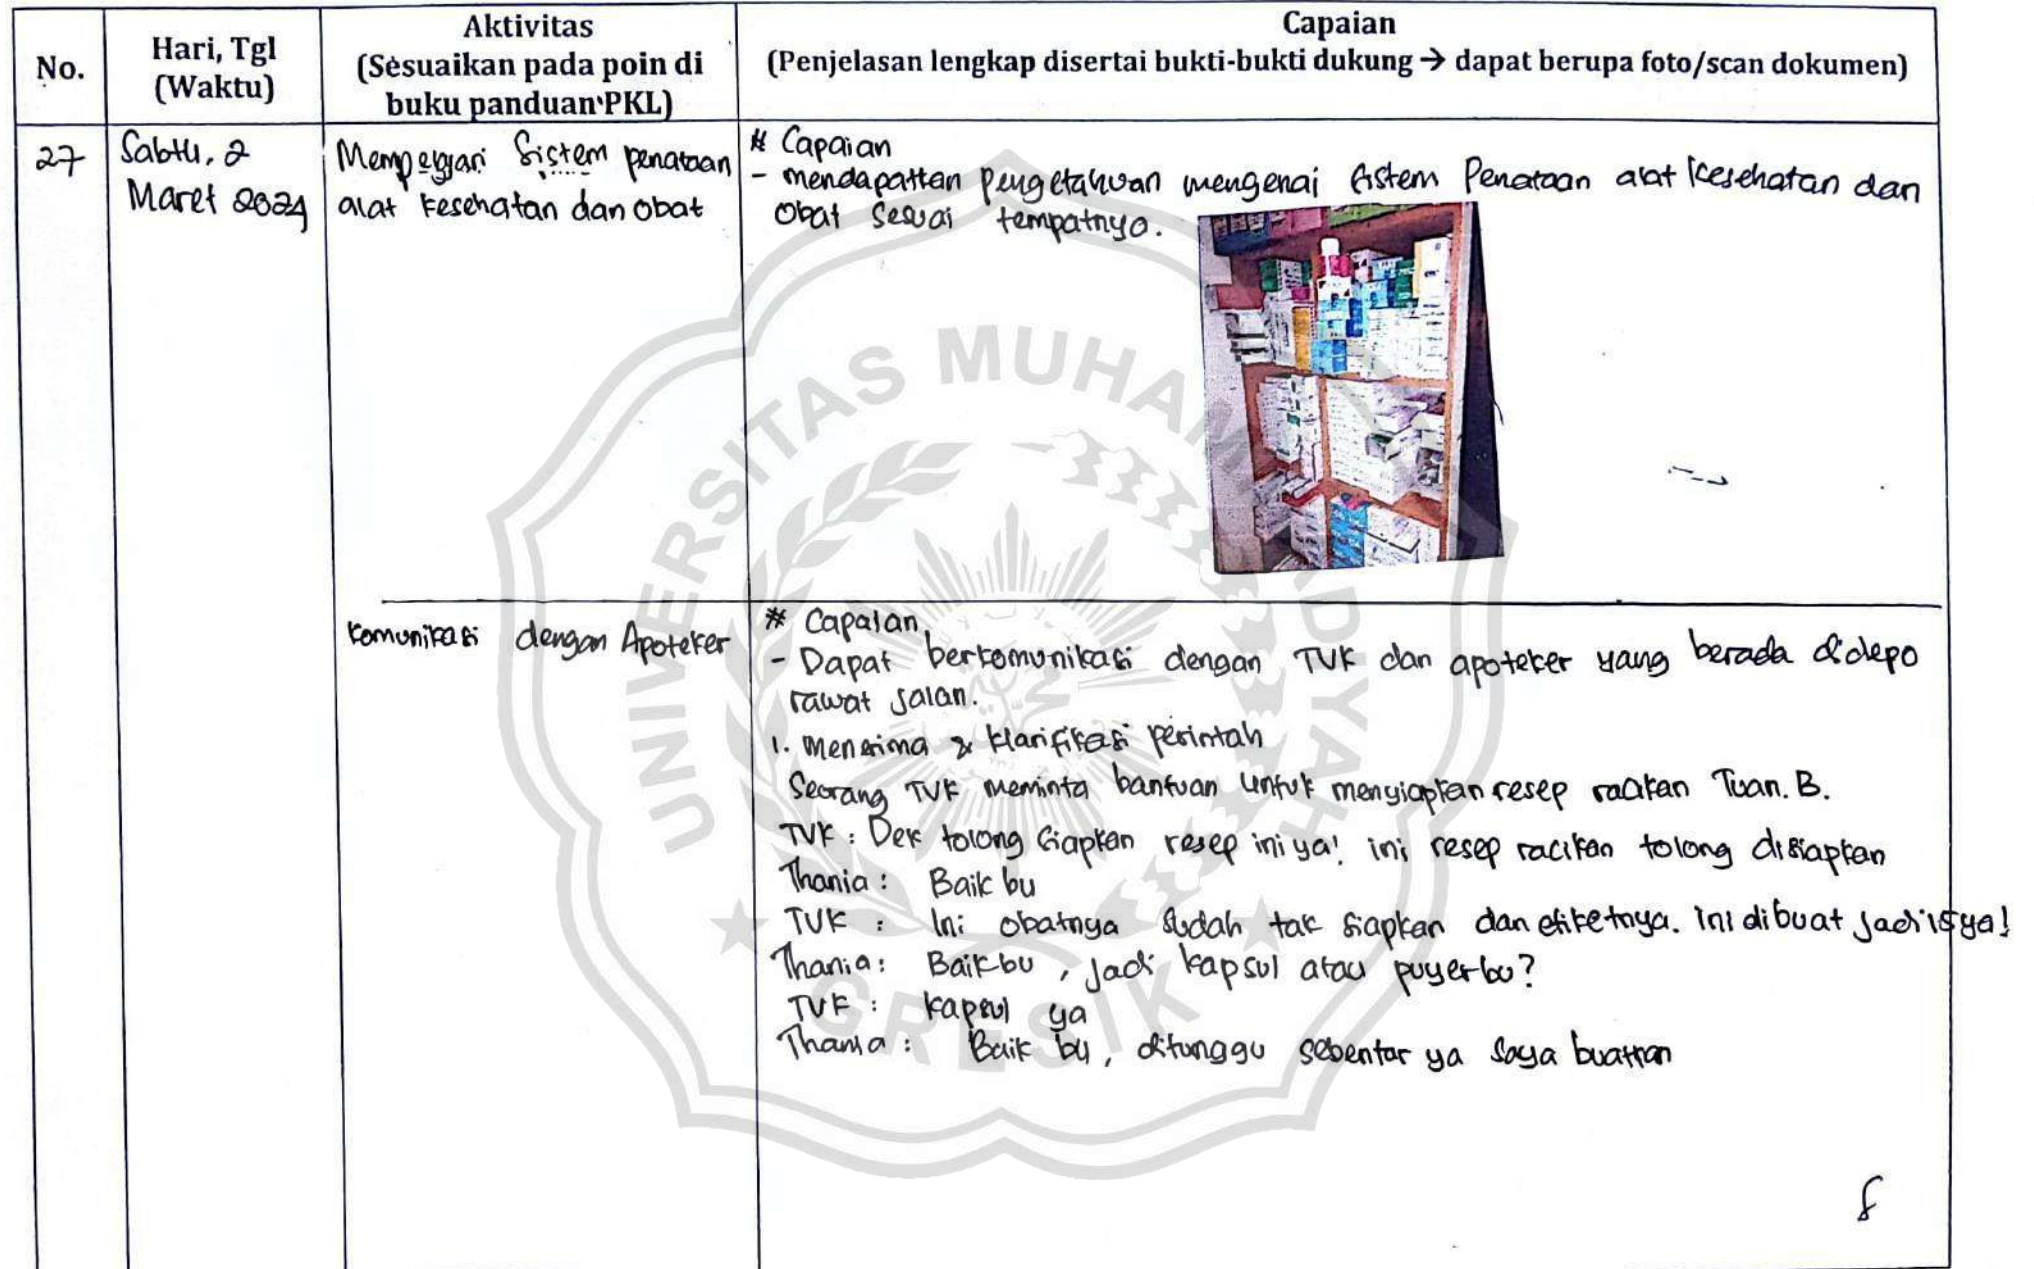 No.
Hari, Tgl
(Waktu)
Aktivitas
(Sesuaikan pada poin di
buku panduan PKL)
Capaian
(Penjelasan lengkap disertai bukti-bukti dukung → dapat berupa foto/scan dokumen)
27
Sabtu, 2
Maret 2024
Mempelajari Sistem penataan
alat kesehatan dan obat
# Capaian
- mendapatkan pengetahuan mengenai sistem Penataan alat kesehatan dan
obat sesuai tempatnya.
komunikasi dengan Apoteker
# Capaian
- Dapat berkomunikasi dengan TVK dan apoteker yang berada didepo
rawat jalan.
1. menerima & klarifikasi perintah
Seorang TVK meminta bantuan untuk menyiapkan resep racikan Tuan. B.
TVK : Dek tolong siapkan resep ini ya! ini resep racikan tolong disiapkan
Thania : Baik bu
TVK : Ini obatnya sudah tak siapkan dan etiketnya. ini dibuat jadi 15 ya!
Thania : Baik bu , jadi kapsul atau puyer bu?
TVK : kapsul ya
Thania : Baik bu, ditunggu sebentar ya saya buatkan
UNIVERSITAS MUHAMMADIYAH
GRESIK